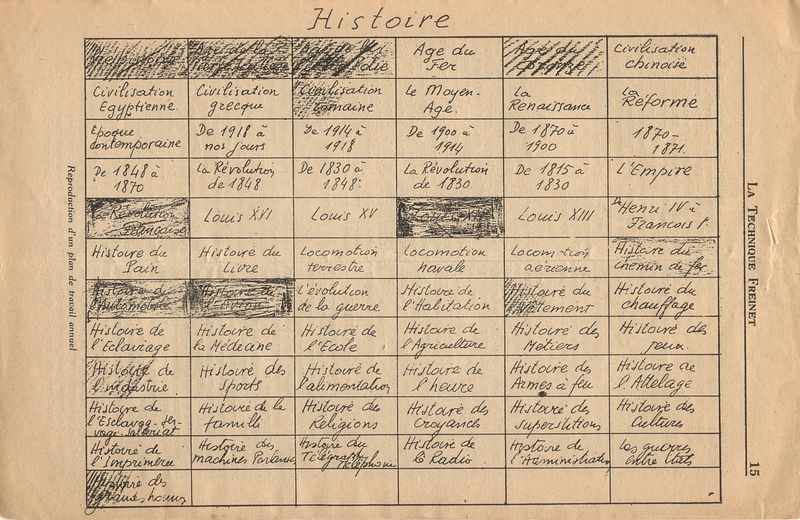 Histoire
Age du
Fer
Civilisation
chinoise
Civilisation
Egyptienne.
Civilisation
grecque
Civilisation
romaine
Le Moyen-
Age.
La
Renaissance
La
Réforme
Epoque
contemporaine
De 1918 à
nos jours
De 1914 à
1918
De 1900 à
1914
De 1870 à
1900
1870-
1871.
De 1848 à
1870
La Révolution
de 1848
De 1830 à
1848.
La Révolution
de 1830
De 1815 à
1830
L'Empire
La Révolution
Française
Louis XVI
Louis XV
Louis XIV
Louis XIII
de Henri IV à
Francois Ier
Histoire du
Pain
Histoire du
Livre
Locomotion
terrestre
Locomotion
navale
Locomotion
aérienne
Histoire du
chemin de fer
Histoire de
l'Automobile
Histoire de
L'évolution
de la guerre
Histoire de
l'Habitation
Histoire du
Vêtement
Histoire du
chauffage
Histoire de
l'Eclairage
Histoire de
la Médecine
Histoire de
l'Ecole
Histoire de
l'Agriculture
Histoire des
Métiers
Histoire des
jeux.
Histoire de
l'industrie
Histoire des
sports
Histoire de
l'alimentation
Histoire de
l'heure
Histoire des
Armes à feu
Histoire de
l'Attelage
Histoire de
l'Esclavage-ser-
vage-salariat
Histoire de la
famille
Histoire des
Religions
Histoire des
Croyances
Histoire des
superstitions
Histoire des
Cultures
Histoire de
l'Imprimerie
Histoire des
machines Parlantes
Histoire du
Télégraphe
Téléphone
Histoire de
la Radio
Histoire de
l'Administration
Les guerres
entre Etats
Histoire des
grands hommes
Reproduction d'un plan de travail annuel
LA TECHNIQUE FREINET
15